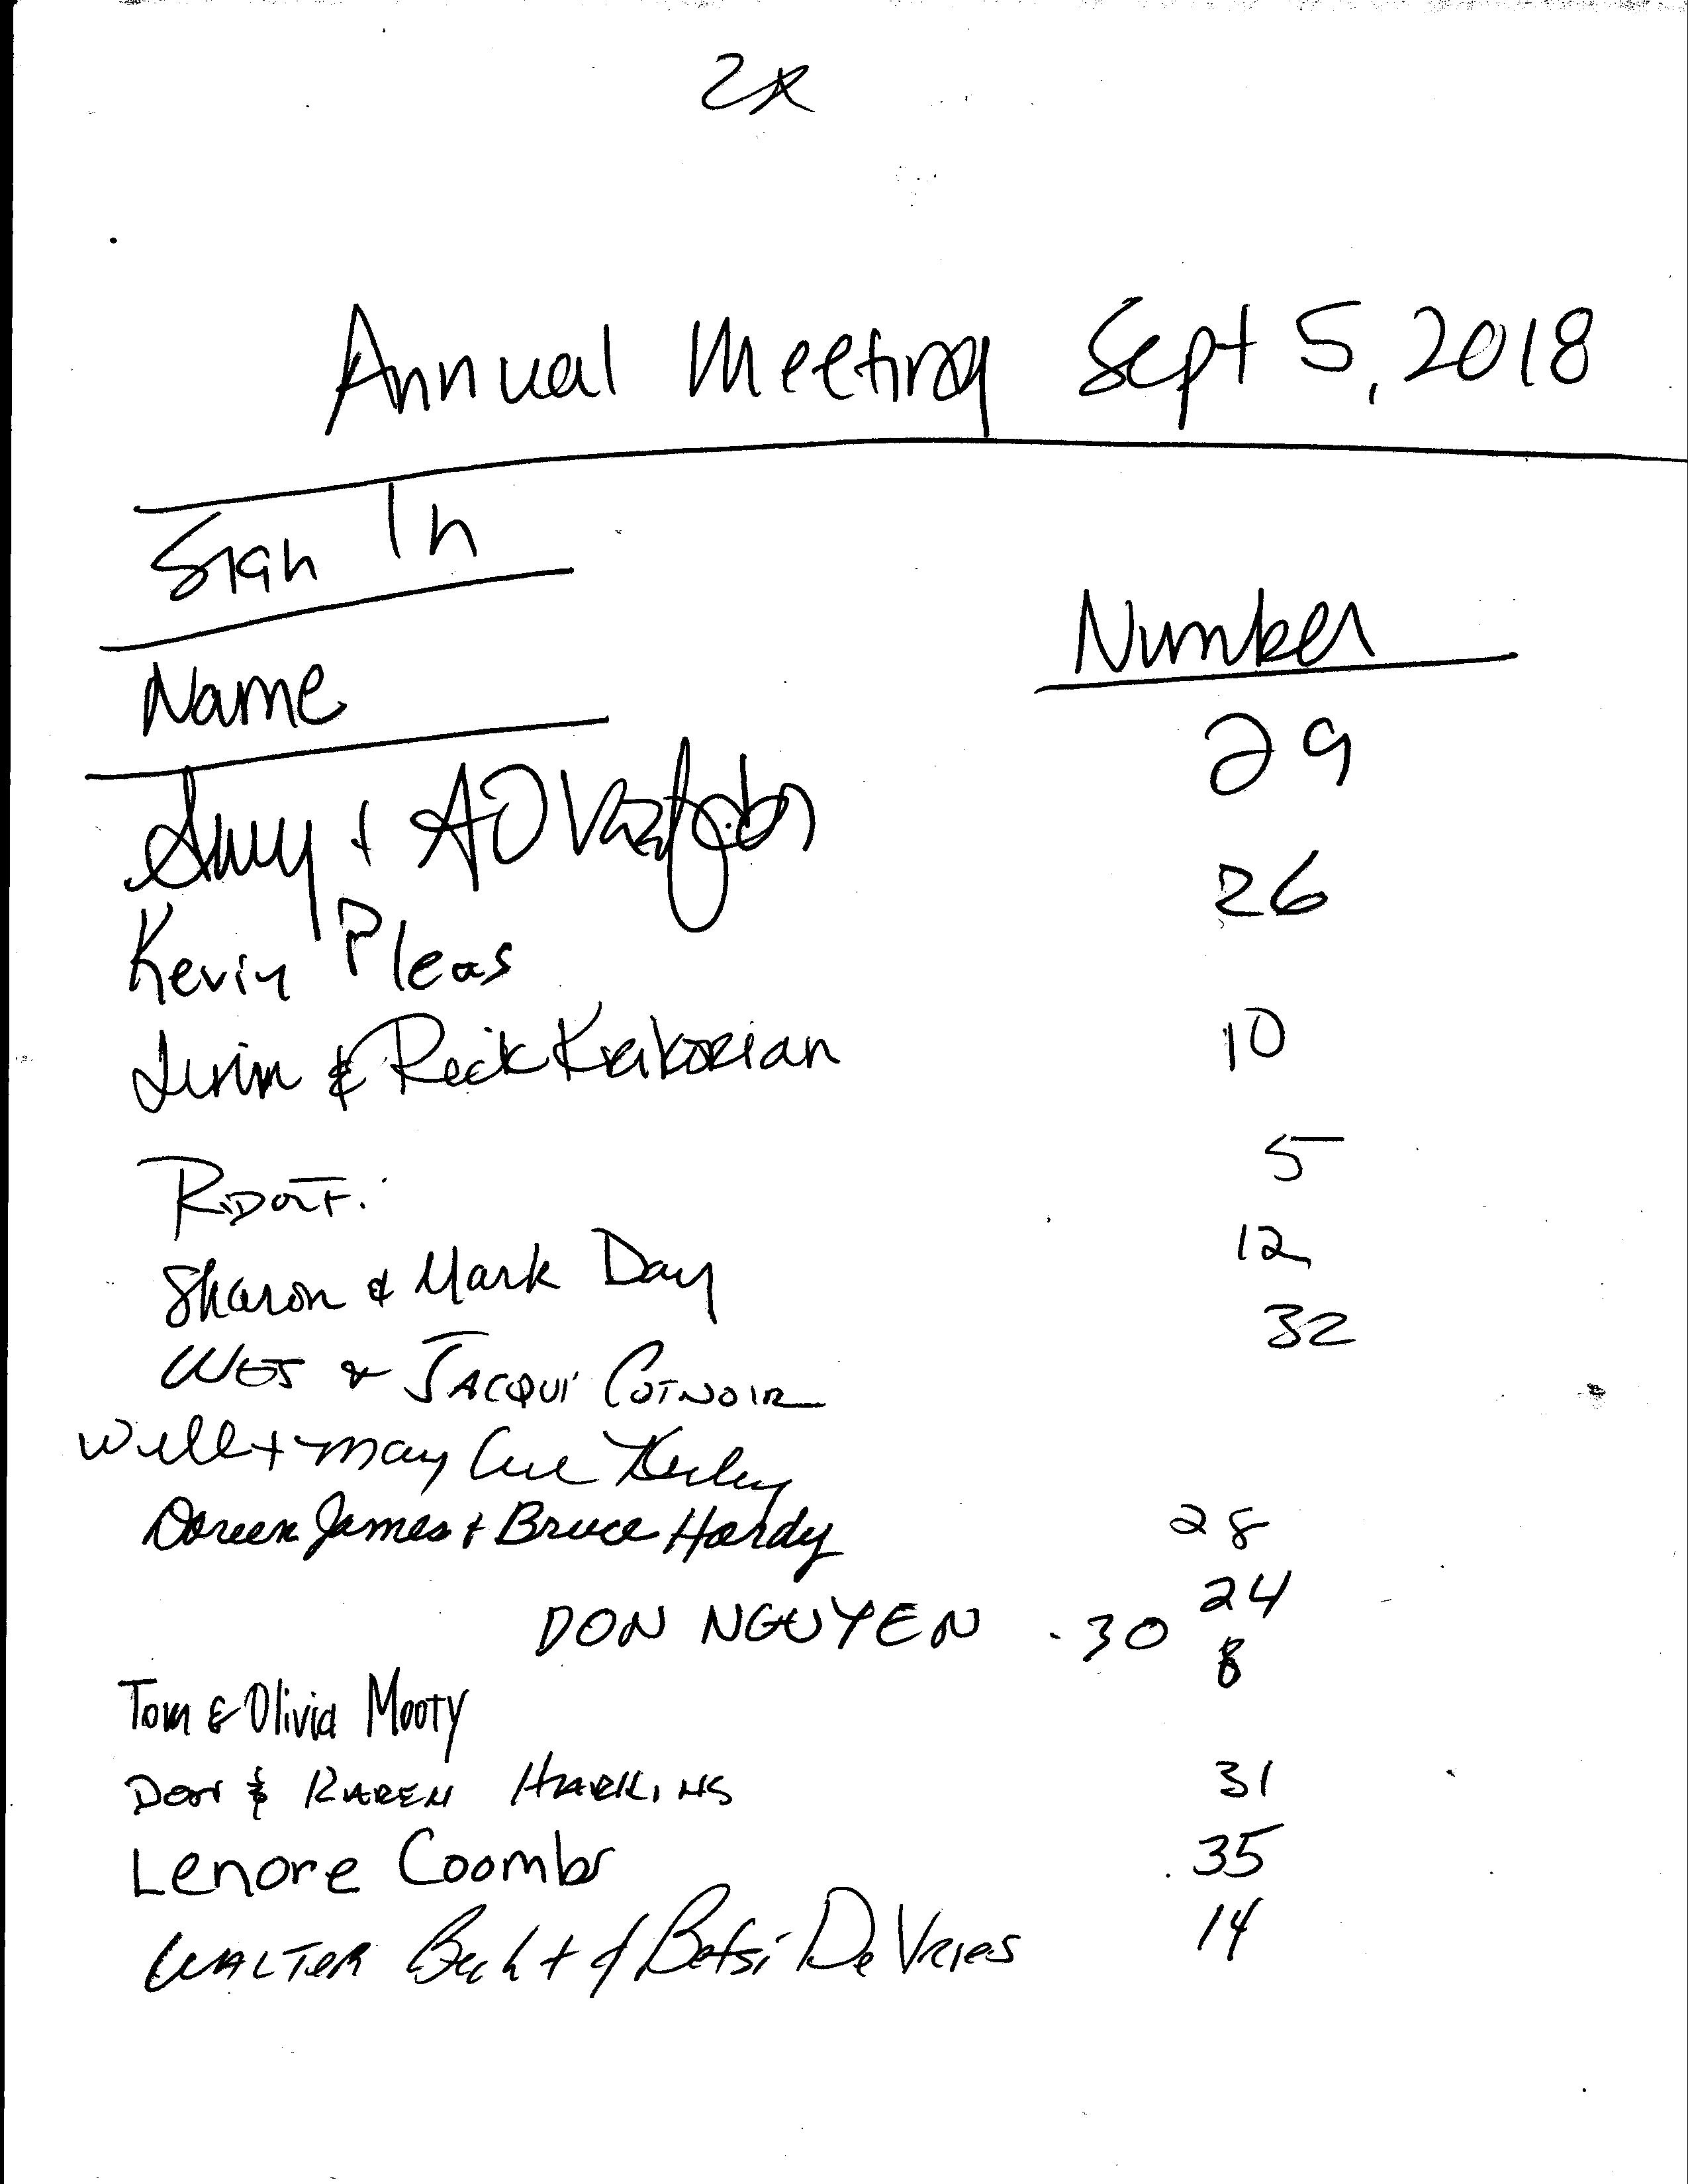 2x
Annual Meeting Sept 5, 2018
Sign In
Name Number
Amy + AO 29
Kevin Pleas 26
& Rick Krikorian 10
5
Sharon & Mark Day 12
WES & JACQUI COTNOIR 32
Will + Mary
Doreen James + Bruce Hardy 28
24
DON NGUYEN - 30
Tom & Olivia Mooty 8
DON & KAREN HARKINS 31
Lenore Coombs 35
WALTER Becht & Betsi De Vries 14